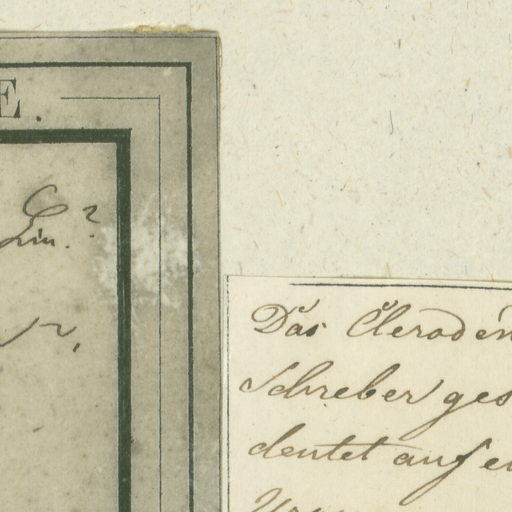 E.
Lin.?
Das Cleroden
Schreber ges
deutet auf e